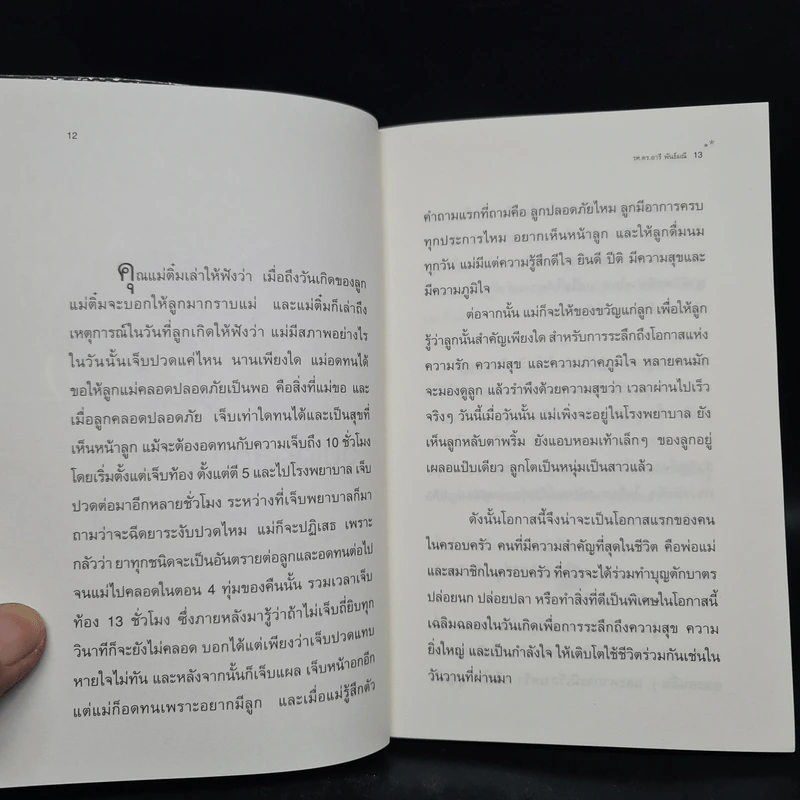 12
คุณแม่ติ๋มเล่าให้ฟังว่า เมื่อถึงวันเกิดของลูก
แม่ติ๋มจะบอกให้ลูกมากราบแม่ และแม่ติ๋มก็เล่าถึง
เหตุการณ์ในวันที่ลูกเกิดให้ฟังว่า แม่มีสภาพอย่างไร
ในวันนั้นเจ็บปวดแค่ไหน นานเพียงใด แม่อดทนได้
ขอให้ลูกแม่คลอดปลอดภัยเป็นพอ คือสิ่งที่แม่ขอ และ
เมื่อลูกคลอดปลอดภัย เจ็บเท่าใดทนได้และเป็นสุขที่
เห็นหน้าลูก แม้จะต้องอดทนกับความเจ็บถึง 10 ชั่วโมง
โดยเริ่มตั้งแต่เจ็บท้อง ตั้งแต่ตี 5 และไปโรงพยาบาล เจ็บ
ปวดต่อมาอีกหลายชั่วโมง ระหว่างที่เจ็บพยาบาลก็มา
ถามว่าจะฉีดยาระงับปวดไหม แม่ก็จะปฏิเสธ เพราะ
กลัวว่า ยาทุกชนิดจะเป็นอันตรายต่อลูกและอดทนต่อไป
จนแม่ไปคลอดในตอน 4 ทุ่มของคืนนั้น รวมเวลาเจ็บ
ท้อง 13 ชั่วโมง ซึ่งภายหลังมารู้ว่าถ้าไม่เจ็บถี่ยิบทุก
วินาทีก็จะยังไม่คลอด บอกได้แต่เพียงว่าเจ็บปวดแทบ
หายใจไม่ทัน และหลังจากนั้นก็เจ็บแผล เจ็บหน้าอกอีก
แต่แม่ก็อดทนเพราะอยากมีลูก และเมื่อแม่รู้สึกตัว
รศ.ดร.อารี พันธ์มณี 13
คำถามแรกที่ถามคือ ลูกปลอดภัยไหม ลูกมีอาการครบ
ทุกประการไหม อยากเห็นหน้าลูก และให้ลูกดื่มนม
ทุกวัน แม่มีแต่ความรู้สึกดีใจ ยินดี ปีติ มีความสุขและ
มีความภูมิใจ
ต่อจากนั้น แม่ก็จะให้ของขวัญแก่ลูก เพื่อให้ลูก
รู้ว่าลูกนั้นสำคัญเพียงใด สำหรับการระลึกถึงโอกาสแห่ง
ความรัก ความสุข และความภาคภูมิใจ หลายคนมัก
จะมองดูลูก แล้วรำพึงด้วยความสุขว่า เวลาผ่านไปเร็ว
จริงๆ วันนี้เมื่อวันนั้น แม่เพิ่งจะอยู่ในโรงพยาบาล ยัง
เห็นลูกหลับตาพริ้ม ยังแอบหอมเท้าเล็กๆ ของลูกอยู่
เผลอแป๊บเดียว ลูกโตเป็นหนุ่มเป็นสาวแล้ว
ดังนั้นโอกาสนี้จึงน่าจะเป็นโอกาสแรกของคน
ในครอบครัว คนที่มีความสำคัญที่สุดในชีวิต คือพ่อแม่
และสมาชิกในครอบครัว ที่ควรจะได้ร่วมทำบุญตักบาตร
ปล่อยนก ปล่อยปลา หรือทำสิ่งที่ดีเป็นพิเศษในโอกาสนี้
เฉลิมฉลองในวันเกิดเพื่อการระลึกถึงความสุข ความ
ยิ่งใหญ่ และเป็นกำลังใจ ให้เติบโตใช้ชีวิตร่วมกันเช่นใน
วันวานที่ผ่านมา